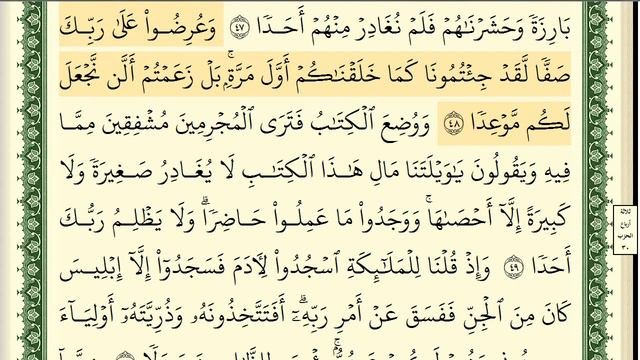 بَارِزَةً وَحَشَرْنَٰهُمْ فَلَمْ نُغَادِرْ مِنْهُمْ أَحَدًا ٤٧ وَعُرِضُوا۟ عَلَىٰ رَبِّكَ
صَفًّا لَّقَدْ جِئْتُمُونَا كَمَا خَلَقْنَٰكُمْ أَوَّلَ مَرَّةٍۭ ۚ بَلْ زَعَمْتُمْ أَلَّن نَّجْعَلَ
لَكُم مَّوْعِدًا ٤٨ وَوُضِعَ ٱلْكِتَٰبُ فَتَرَى ٱلْمُجْرِمِينَ مُشْفِقِينَ مِمَّا
فِيهِ وَيَقُولُونَ يَٰوَيْلَتَنَا مَالِ هَٰذَا ٱلْكِتَٰبِ لَا يُغَادِرُ صَغِيرَةً وَلَا
كَبِيرَةً إِلَّآ أَحْصَىٰهَا ۚ وَوَجَدُوا۟ مَا عَمِلُوا۟ حَاضِرًا ۗ وَلَا يَظْلِمُ رَبُّكَ
أَحَدًا ٤٩ وَإِذْ قُلْنَا لِلْمَلَٰٓئِكَةِ ٱسْجُدُوا۟ لِءَادَمَ فَسَجَدُوٓا۟ إِلَّآ إِبْلِيسَ
كَانَ مِنَ ٱلْجِنِّ فَفَسَقَ عَنْ أَمْرِ رَبِّهِۦٓ ۗ أَفَتَتَّخِذُونَهُۥ وَذُرِّيَّتَهُۥٓ أَوْلِيَآءَ
ثلاثة
أرباع
الحزب
٣٠